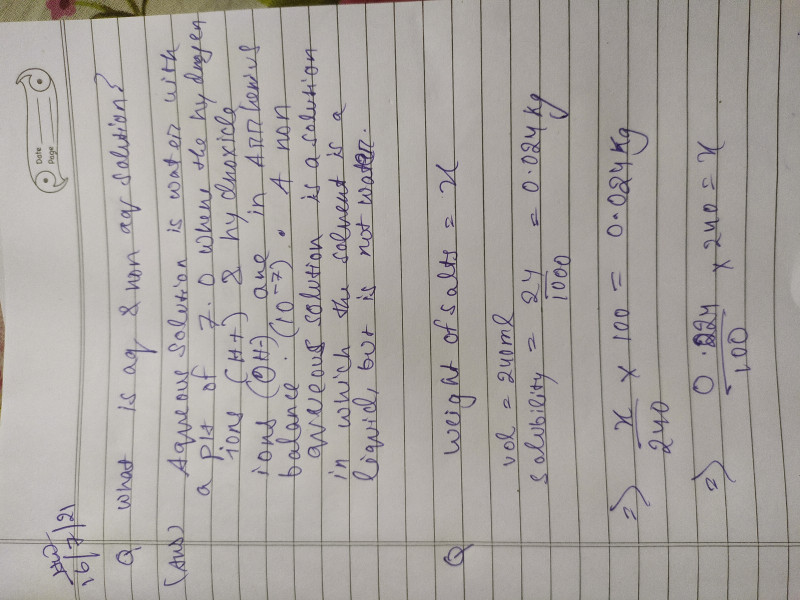 Date
Page
HW
16/7/21
Q. What is aq & non aq solution?
(Ans) Aqueous solution is water with
a pH of 7.0 where the hydrogen
ions (H+) & hydroxide
ions (OH-) are in Arrhenius
balance (10-7). A non
aqueous solution is a solution
in which the solvent is a
liquid, but is not water.
Q Weight of salts = x
vol = 240ml
Solubility = 24/1000 = 0.024 kg
=) x/240 x 100 = 0.024 kg
=) 0.024/100 x 240 = x